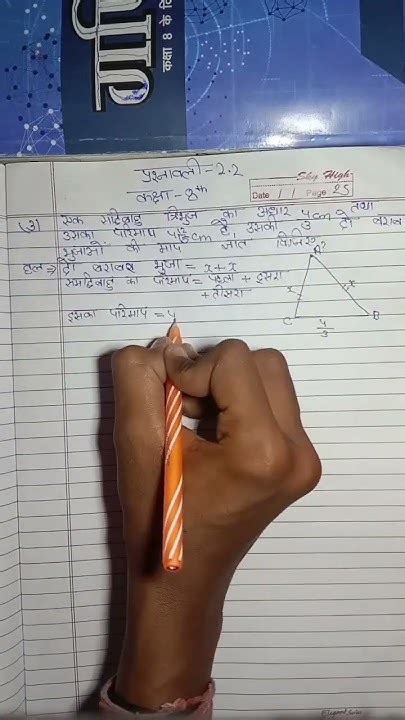 गणि
कक्षा 8 के
प्रश्नावली - 2.2
Sky High
कक्षा - 8th
Date / / Page 25
3) एक समद्विबाहु त्रिभुज का आधार 4/3 cm तथा
उसका परिमाप 4 2/15 cm है, उसकी दो बराबर
भुजाओं की माप ज्ञात कीजिए
A?
हल ⇒ दो बराबर भुजा = x + x
समद्विबाहु का परिमाप = पहला + दूसरा
+ तीसरा
x x
इसका परिमाप = 4
C B
4/3